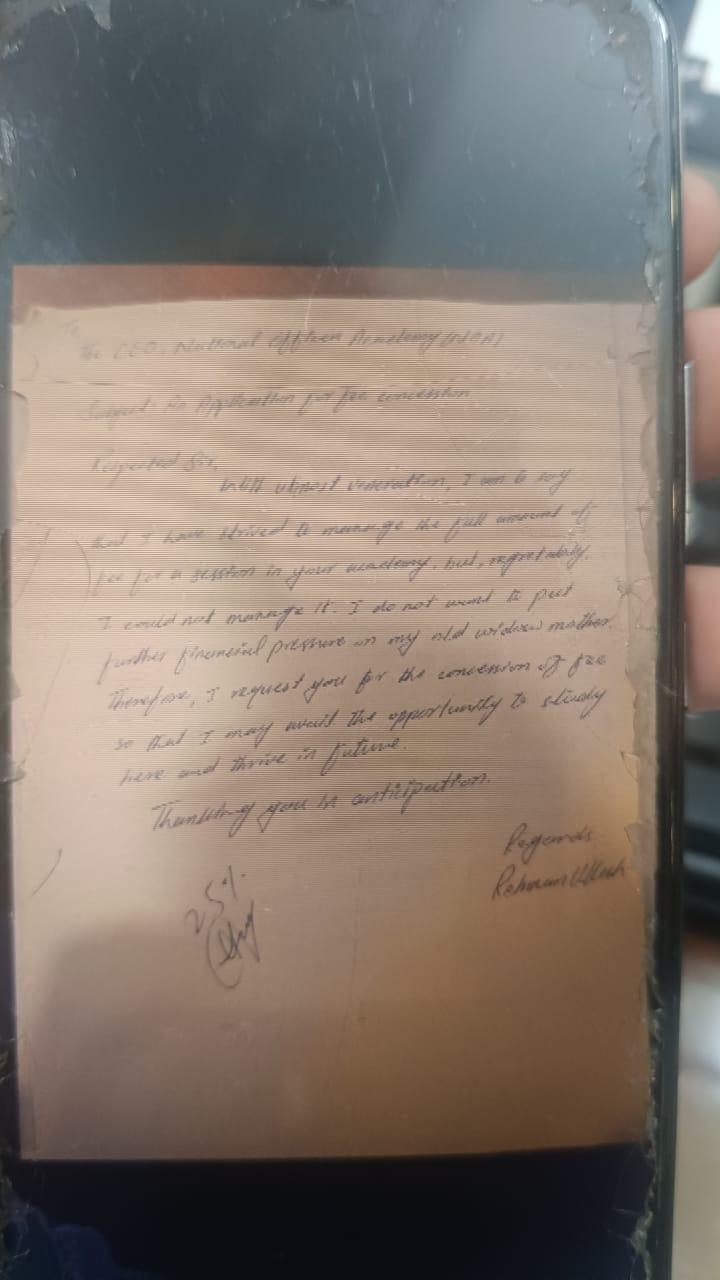 To
The CEO, National Officers Academy (NOA)
Subject: An Application for fee concession
Respected Sir,
With utmost veneration, I am to say
that I have strived to manage the full amount of
fee for a session in your academy, but, regretably,
I could not manage it. I do not want to put
further financial pressure on my old widow mother.
Therefore, I request you for the concession of fee
so that I may avail the opportunity to study
here and thrive in future.
Thanking you in anticipation.
Regards
Rehman Ullah
25%